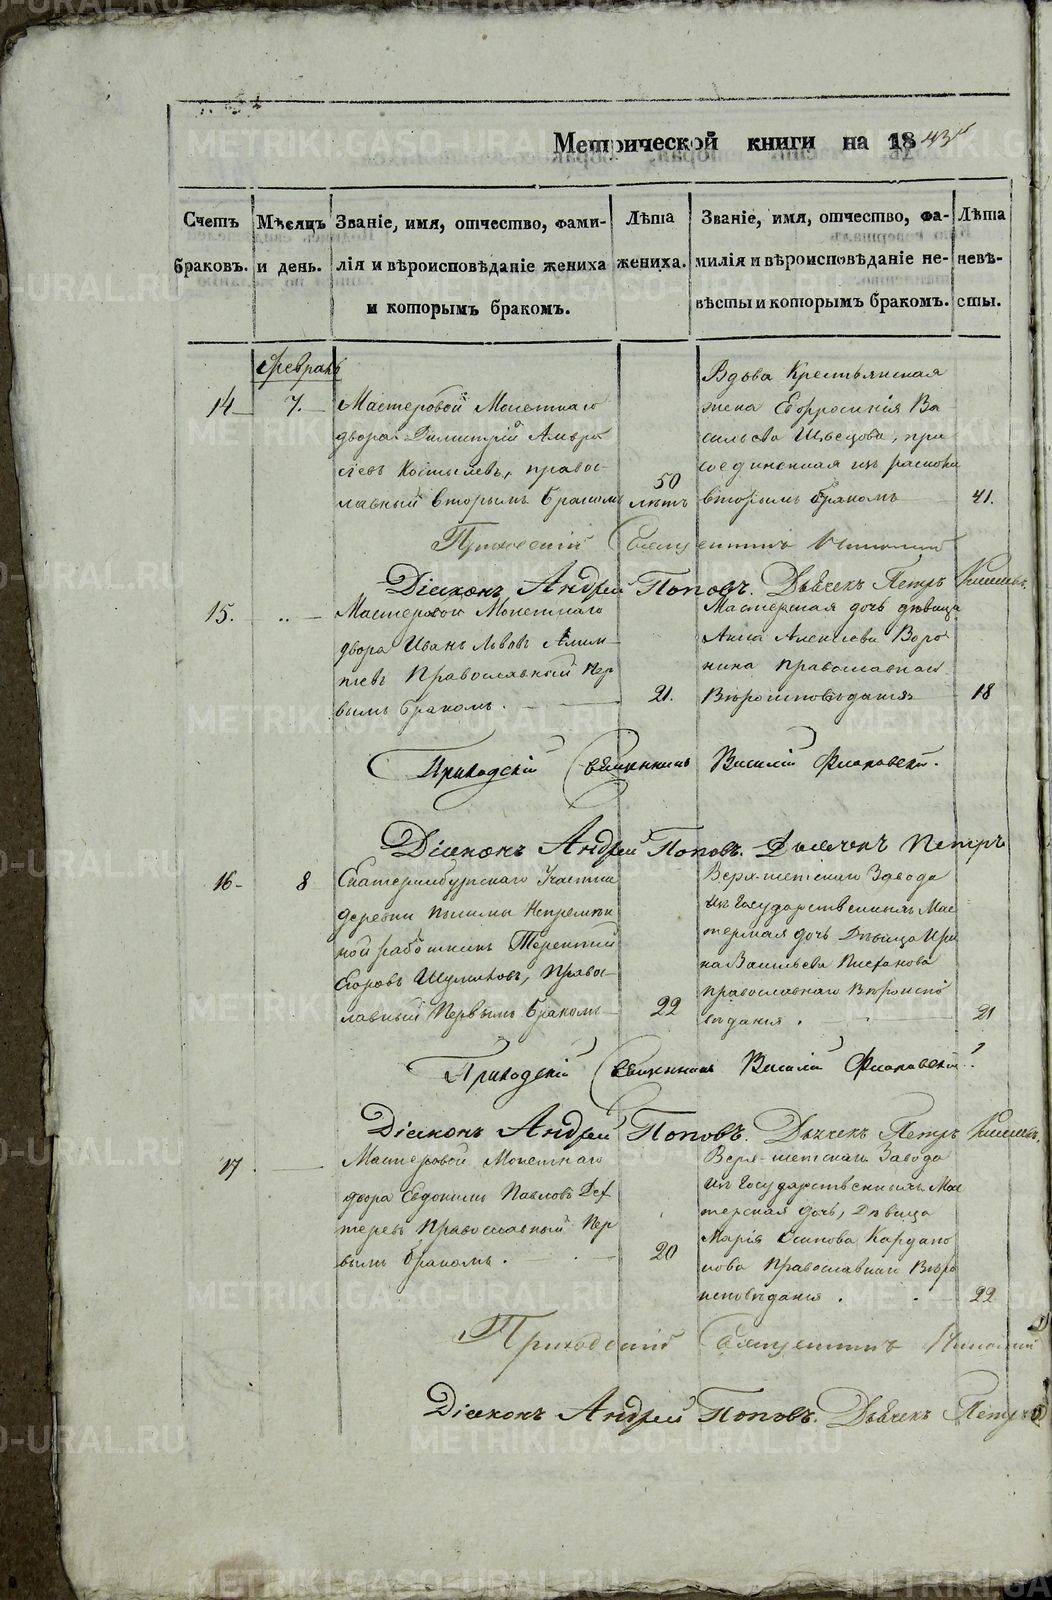 Метрической книги на 1843й
Счетъ браковъ.
Мѣсяцъ и день.
Званіе, имя, отчество, фами-
лія и вѣроисповѣданіе жениха
и которымъ бракомъ.
Лѣта жениха.
Званіе, имя, отчество, фа-
милія и вѣроисповѣданіе не-
вѣсты и которымъ бракомъ.
Лѣта невѣ-
сты.
Февраль
14
7.
Мастеровой Монетнаго
двора Димитрій
Костылевъ, правос-
лавный вторымъ бракомъ
50
лѣтъ
Вдова Крестьянская
жена Евфросинія Ва
сильева Швецова, при
соединенная изъ раскола
вторымъ бракомъ
41.
Приходскій Священникъ
Діаконъ Андрей Поповъ. Дьячекъ Петръ
15.
Мастеровой Монетнаго
двора Иванъ Львовъ
Православный Пер
вымъ бракомъ.
21.
Мастерская дочь дѣвица
Анна Алексѣева Воро
нина православнаго
Вѣроисповѣданія
18
Приходскій Священникъ Василій Фіалковскій.
Діаконъ Андрей Поповъ. Дьячекъ Петръ
16
8
Екатеринбургскаго Участка
деревни Пышмы Непремѣн
ной работникъ Терентій
Егоровъ Шумиловъ, Правос-
лавный Первымъ бракомъ
22
Верх-Исетскаго Завода
изъ Государственныхъ Мас
терская дочь Дѣвица Ири
на Васильева
православнаго Вѣроиспо
вѣданія.
21
Приходскій Священникъ Василій Фіалковскій.
Діаконъ Андрей Поповъ. Дьячекъ Петръ
17
Мастеровой Монетнаго
двора Евдокимъ Павловъ Дех
теревъ Православный Пер
вымъ бракомъ.
20
Верх-Исетскаго Завода
изъ Государственныхъ Мас
терская дочь, Дѣвица
Марія Осипова Кардапо
лова Православнаго Вѣро
исповѣданія.
22
Приходскій Священникъ
Діаконъ Андрей Поповъ. Дьячекъ Петръ
METRIKI.GASO-URAL.RU